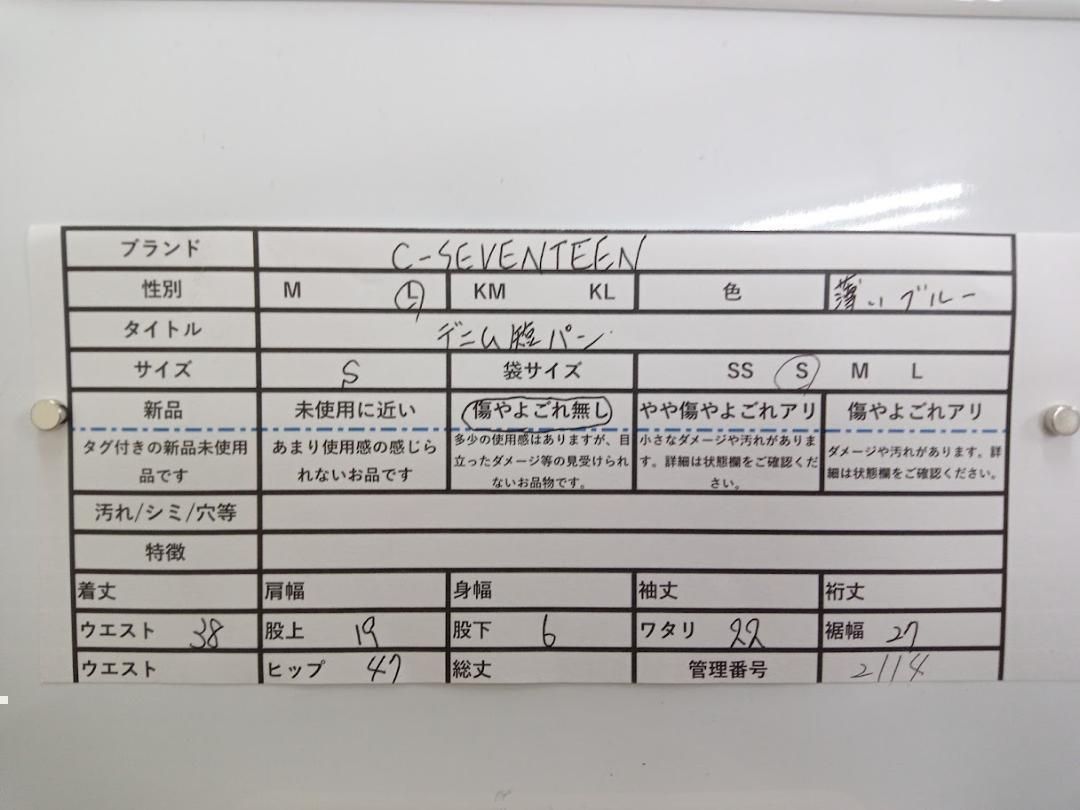 ブランド C-SEVENTEEN
性別 M L KM KL 色 薄いブルー
タイトル デニム短パン
サイズ S 袋サイズ SS S M L
新品 未使用に近い 傷やよごれ無し やや傷やよごれアリ 傷やよごれアリ
タグ付きの新品未使用
品です
あまり使用感の感じら
れないお品です
多少の使用感はありますが、目
立ったダメージ等の見受けられ
ないお品物です。
小さなダメージや汚れがありま
す。詳細は状態欄をご確認くだ
さい。
ダメージや汚れがあります。詳
細は状態欄をご確認ください。
汚れ/シミ/穴等
特徴
着丈 肩幅 身幅 袖丈 裄丈
ウエスト 38 股上 19 股下 6 ワタリ 22 裾幅 27
ウエスト ヒップ 47 総丈 管理番号 2114